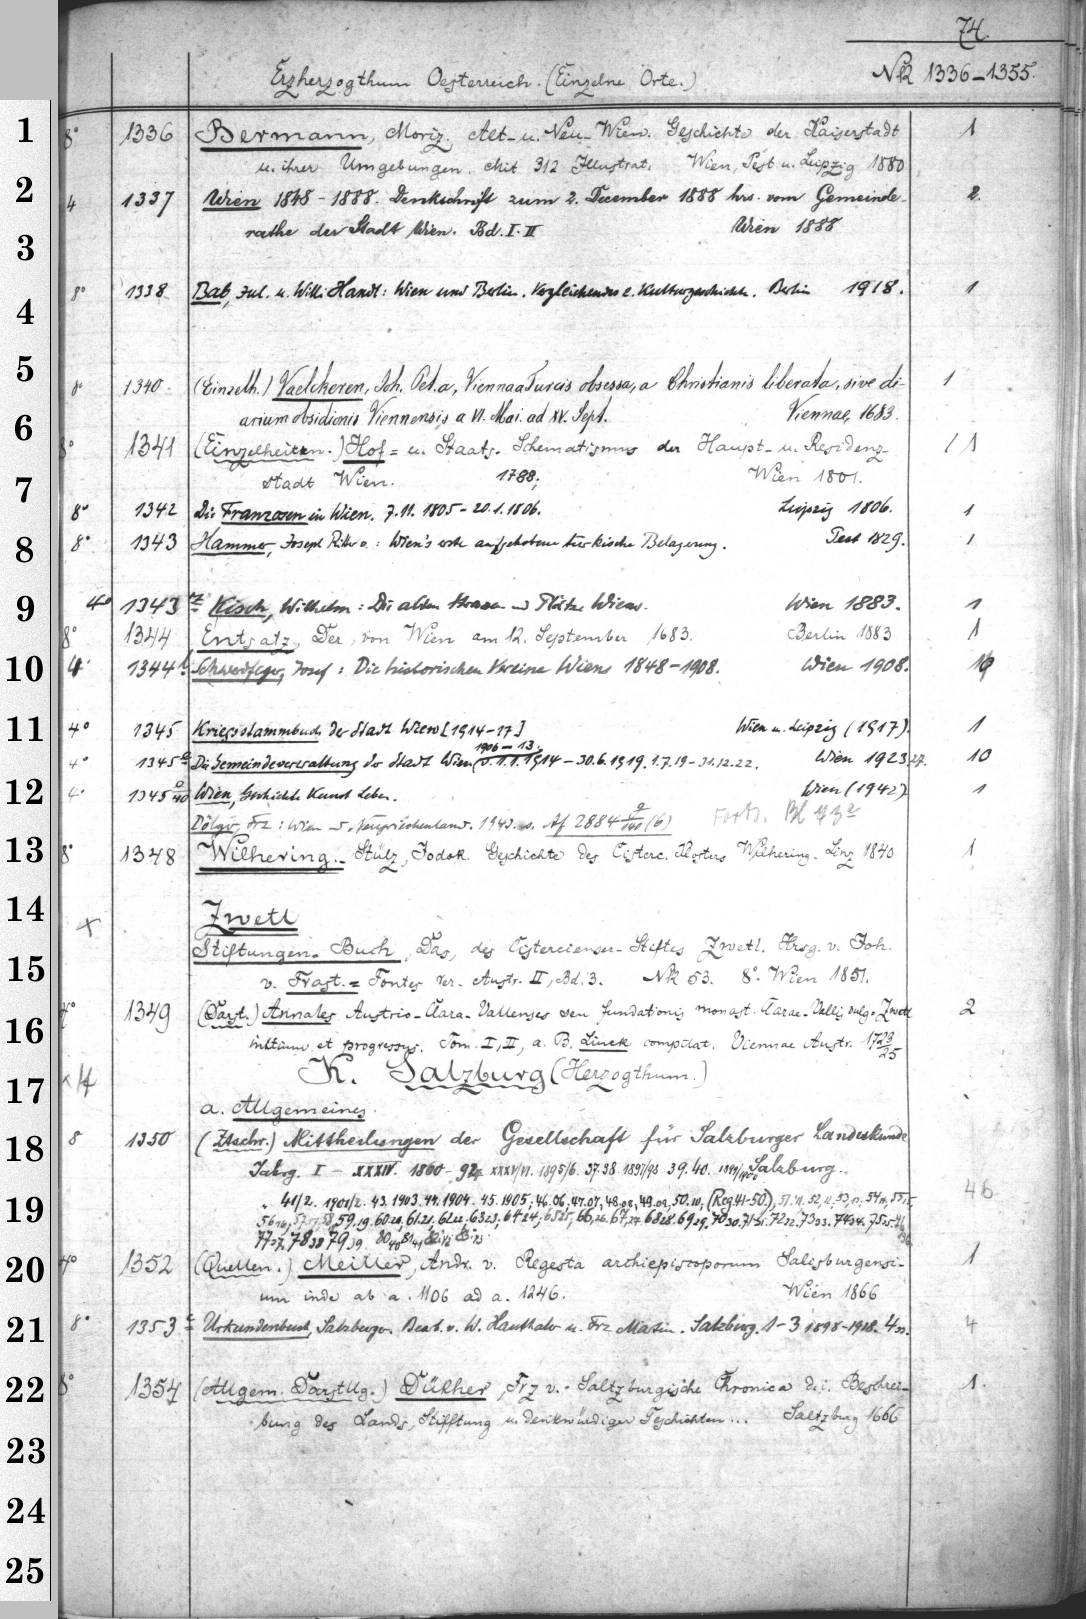 74.
Erzherzogthum Oesterreich. (Einzelne Orte.) No 1336–1355.
1
8° 1336 Bermann, Moriz. Alt- u. Neu-Wien. Geschichte der Kaiserstadt 1
u. ihrer Umgebungen. Mit 312 Illustrat. Wien, Pest u. Leipzig 1880
2
4 1337 Wien 1848–1888. Denkschrift zum 2. December 1888 hrs. vom Gemeinde- 2.
rathe der Stadt Wien. Bd. I. II Wien 1888
3
8° 1338 Bab, Jul. u. Willi Handl: Wien und Berlin. Vergleichendes z. Kulturgeschichte. Berlin 1918. 1
4
5
8° 1340. (Einzelh.) Vaelckeren, Joh. Pet. a, Vienna a Turcis obsessa, a Christianis liberata, sive di- 1
6
arium obsidionis Viennensis a VI. Mai. ad XV. Sept. Viennae, 1683.
8° 1341 (Einzelheiten.) Hof= u. Staats- Schematismus der Haupt- u. Residenz- 1
7
stadt Wien. 1788; Wien 1801.
8° 1342 Die Franzosen in Wien. 7.11.1805–20.1.1806. Leipzig 1806. 1
8
8° 1343 Hammer, Joseph Ritter v.: Wien's erste aufgehobene türkische Belagerung. Pest 1829. 1
9
4° 1343 Kisch, Wilhelm: Die alten Strassen u Plätze Wiens. Wien 1883. 1
8° 1344 Entsatz, Der, von Wien am 12. September 1683. Berlin 1883 1
10
4° 1344 b Schwerdfeger, Josef: Die historischen Vereine Wiens 1848–1908. Wien 1908. 1
11
4° 1345 Kriegsstammbuch der Stadt Wien [1914–17] Wien u. Leipzig (1917). 1
1906–13.
4° 1345 a Die Gemeindeverwaltung der Stadt Wien v. 1.1.1914–30.6.1919. 1.7.19–31.12.22. Wien 1923,27. 10
12
4° 1345 a/40 Wien, Geschichte Kunst Leben. Wien (1942) 1
Dölger, Frz: Wien u. Neugriechenland. 1943. s. Af 2884 a/140 (6) Forts. Bl 73a
13
8° 1348 Wilhering. Stülz, Jodok. Geschichte des Cisterc. Klosters Wilhering. Linz 1840 1
14
Zwetl
x
Stiftungen-Buch, Das, des Cistercienser-Stiftes Zwetl. Hrsg. v. Joh.
15
v. Frast. = Fontes rer. Austr. II, Bd. 3. No 53. 8°. Wien 1851.
4° 1349 (Darst.) Annales Austrio-Clara-Vallenses seu fundationis monast. Clarae-Vallis vulgo Zwetl 2
16
initium et progressus. Tom. I, II, a. B. Linck compilat. Viennae Austr. 1723/25
K. Salzburg (Herzogthum.)
17
a. Allgemeines.
18
8 1350 (Ztschr.) Mittheilungen der Gesellschaft für Salzburger Landeskunde
Jahrg. I – XXXIV. 1860–94. XXXV/VI. 1895/6. 37.38 1897/98 39.40. 1899/1900 Salzburg.
19
41/2. 1901/2. 43.1903.44.1904. 45.1905; 46.06, 47.07, 48.08, 49.09, 50.10, (Reg 41–50), 46
20
4° 1352 (Quellen.) Meiller, Andr. v. Regesta archiepiscoporum Salisburgensi- 1
um inde ab a. 1106 ad a. 1246. Wien 1866
21
8° 1353 c Urkundenbuch, Salzburger. Bearb. v. W. Hauthaler u. Frz Martin. Salzburg. 1–3 1898–1918. 4 33. 4
22
8° 1354 (Allgem. Darstllg.) Dückher, Frz v. Saltzburgische Chronica d.i. Beschrei- 1.
bung des Lands, Stifftung u. denkwürdiger Geschichten... Saltzburg 1666
23
24
25